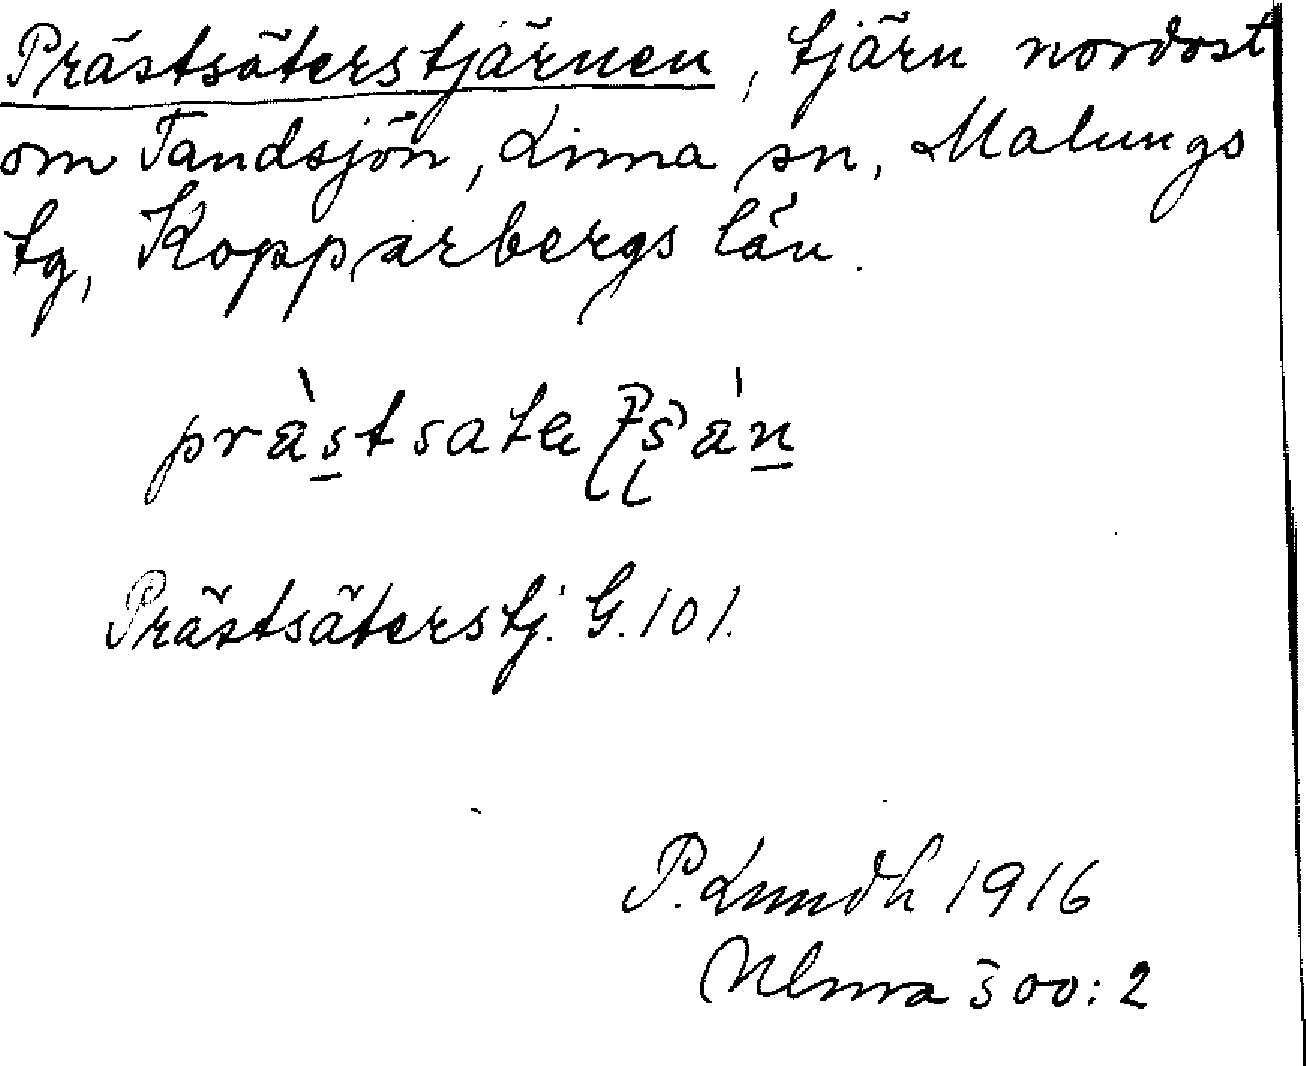 Prästsäterstjärnen, tjärn nordost
om Tandsjön, Lima sn, Malungs
tg, Kopparbergs län.
Prästsäterstj. G. 101.
P. Lundh 1916
Ulma 500:2